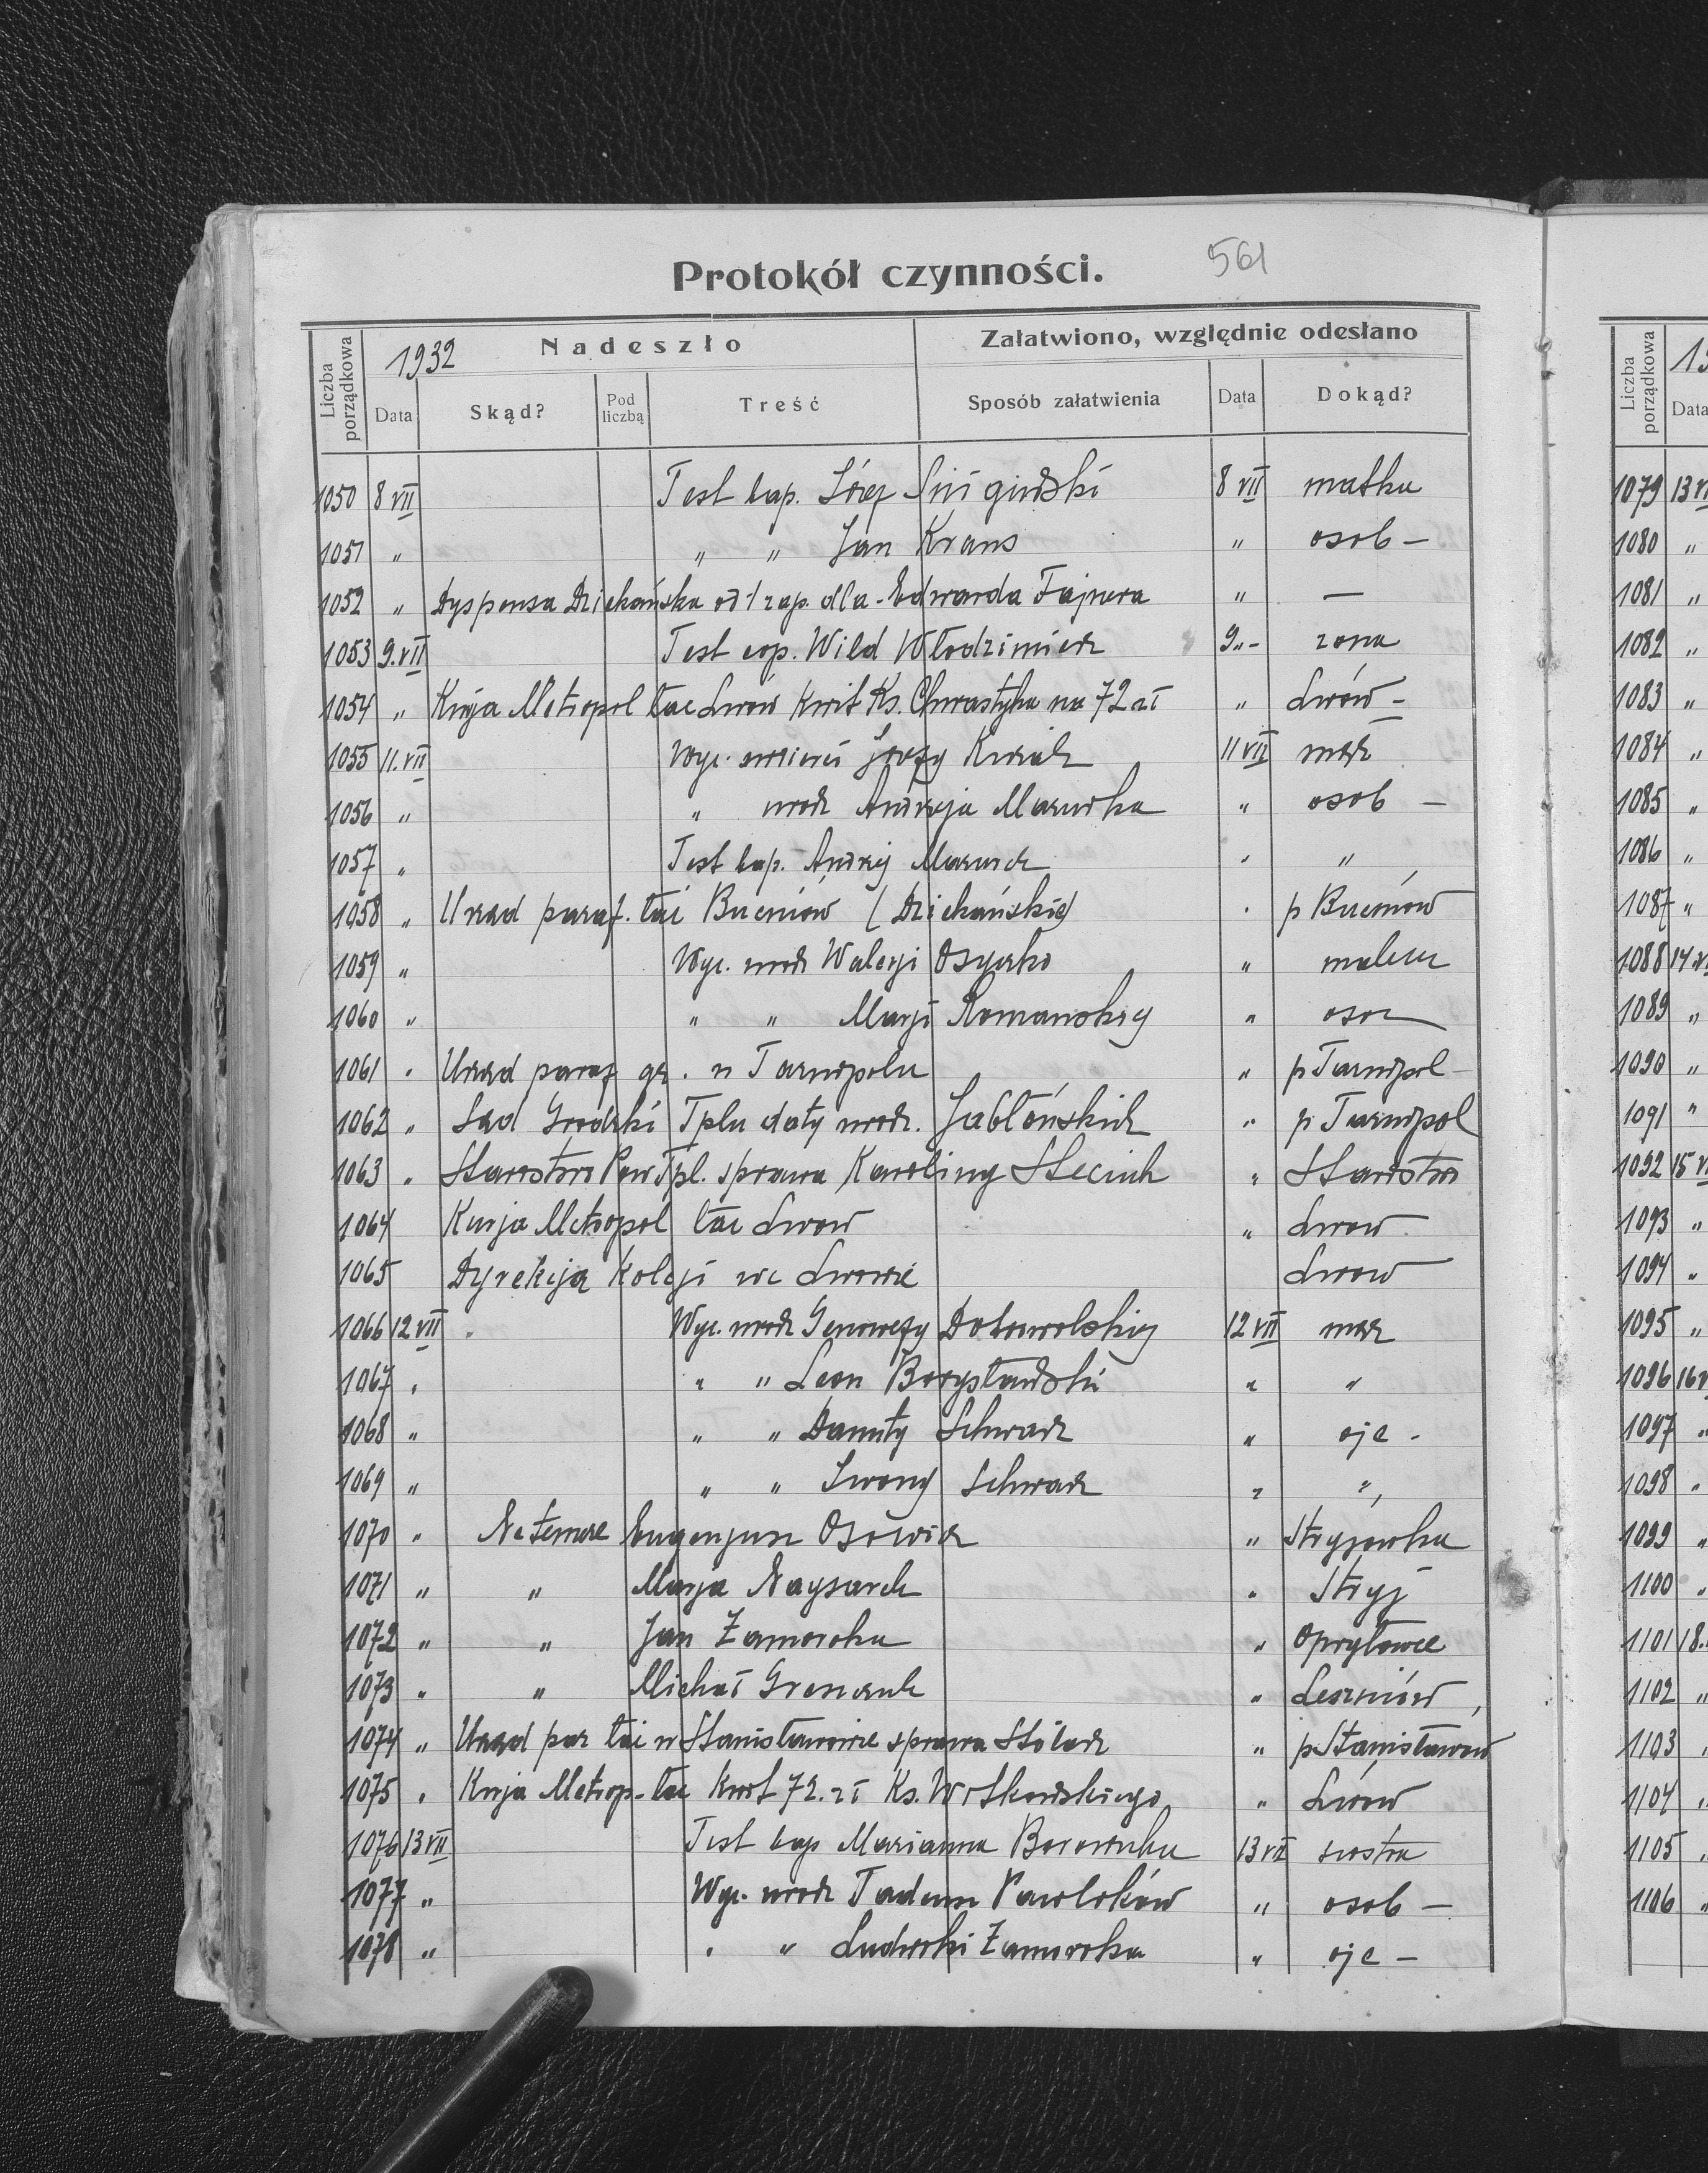 Protokół czynności. 561
Liczba porządkowa 1932 Nadeszło Załatwiono, względnie odesłano
Data Skąd? Pod liczbą Treść Sposób załatwienia Data Dokąd?
1050 8 VII Test bap. Józef 8 VII matka
1051 " " " Jan Kraus " osob –
1052 " Dyspensa Dziekańska od 1 zap. dla Edwarda Fajnera " —
1053 9. VII Test cop. Wild Włodzimierz 9 " - zona
1054 " Kurja Metropol łac Lwów Kwit Ks. Chwastyka na 72 zł " Lwów –
1055 11. VII Wyc. 11 VII mąż
1056 " " urodz Andrzeja Mazurka " osob –
1057 " Test bap. Andrzej Mazurek " "
1058 " Urząd paraf. łac Bucniów (Dziekański) " p Bucniów
1059 " Wyc. urodz Waleryi Osyorko "
1060 " " " Marji Romanskiej "
1061 " Urząd paraf gr. w Tarnopolu " p Tarnopol
1062 " Sąd Grodzki Tplu daty urodz. Jabłońskich " p Tarnopol
1063 " Starostwo Pow Tpl. sprawa Karoliny Steciuk " Starostwo
1064 Kurja Metropol łac Lwow " Lwow
1065 Dyrekcja Koleji we Lwowie Lwow
1066 12 VII " Wyc. urodz Genowefy Dobrowolskiej 12 VII mąż
1067 " " " Leon Borysławski " "
1068 " " " Danuty Schwarz " ojc -
1069 " " " Iwony Schwarz " "
1070 " Ne temere Eugenjusz Osowicz " Stryjowka
1071 " " Marja Naysarek " Stryj
1072 " " Jan Zamoroka " Opryłowce
1073 " " Michał Greszczuk " Leszniów
1074 " Urząd par łac w Stanisławowie sprawa Stolarz " p Stanisławow
1075 " Kurja Metrop. łac Kwit 72. zł Ks. Witkowskiego " Lwow
1076 13 VII Test bap Marianna Borowska 13 VII siostra
1077 " Wyc. urodz Tadeusz Pawloków " osob –
1078 " " " Ludwiki Zamoroka " ojc –
Liczba porządkowa
Data
1079 13
1080 "
1081 "
1082 "
1083 "
1084 "
1085 "
1086 "
1087 "
1088 14
1089 "
1090 "
1091 "
1092 15
1093 "
1094 "
1095 "
1096 16
1097 "
1098 "
1099 "
1100 "
1101 18.
1102 "
1103
1104
1105
1106 "